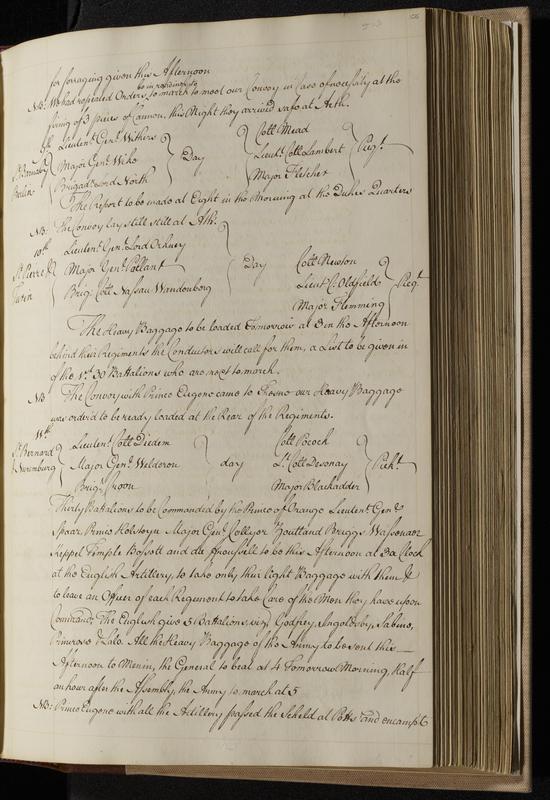 for forraging given this Afternoon
NB: We had repeated Orders to be in readiness to march to meet our Convoy in Case of necessity at the
firing of 3 pieces of Cannon, this Night they arrived safe at Aeth.
9th Lieutent. Genl. Withers Coll: Mead
St. Barnaby Major Genl. Day Lieut: Coll Lambert Piqt.
Berlin Brigad. Lord North Major Fletcher
The Report to be made at Eight in the Morning at the Dukes Quarters
NB: The Convoy lay still at Ath.
10th Lieutent. Genl. Lord Orkney
St. Pierre & Major Genl. Day Coll: Newton Piqt
Turin Brigr. Coll Nassau Wandenburg Lieut. C: Oldfields
Major Flemming
The Heavy Baggage to be loaded Tomorrow at in the Afternoon
behind their Regiments the Conductors will call for them, a List to be given in
of the 30 Battalions who are next to march.
NB: The Convoy with Prince Eugene came to our Heavy Baggage
was order'd to be ready loaded at the Rear of the Regiments.
11th
St. Bernard Lieutent: Coll: Dedem Coll: Pocock
& Nuremburg Major Genl. Welderen day Lt. Coll: Devonay Pickt.
Brigr. Major Blackadder
Thirty Battalions to be Commanded by the Prince of Orange Lieutent. Genl.
Spaar, Prince Holsteyn Major Genl. Collyer Zoutland Briggs Wassenaer
Keppel Temple Bossott and da to be this Afternoon at 3 a Clock
at the English Artillery, to take only their light Baggage with them &
to leave an Officer of each Regiment to take Care of the Men they have upon
Command, The English give 5 Battalions vizt. Godfrey, Ingoldsby, Sabine,
Primrose & Lalo. All the Heavy Baggage of the Army to be sent this
Afternoon to Menin, the General to beat at 4 Tomorrow Morning, Half
an hour after the Assembly, the Army to march at 5
NB: Prince Eugene with all the Artillery passed the Scheld at Potts and encampt